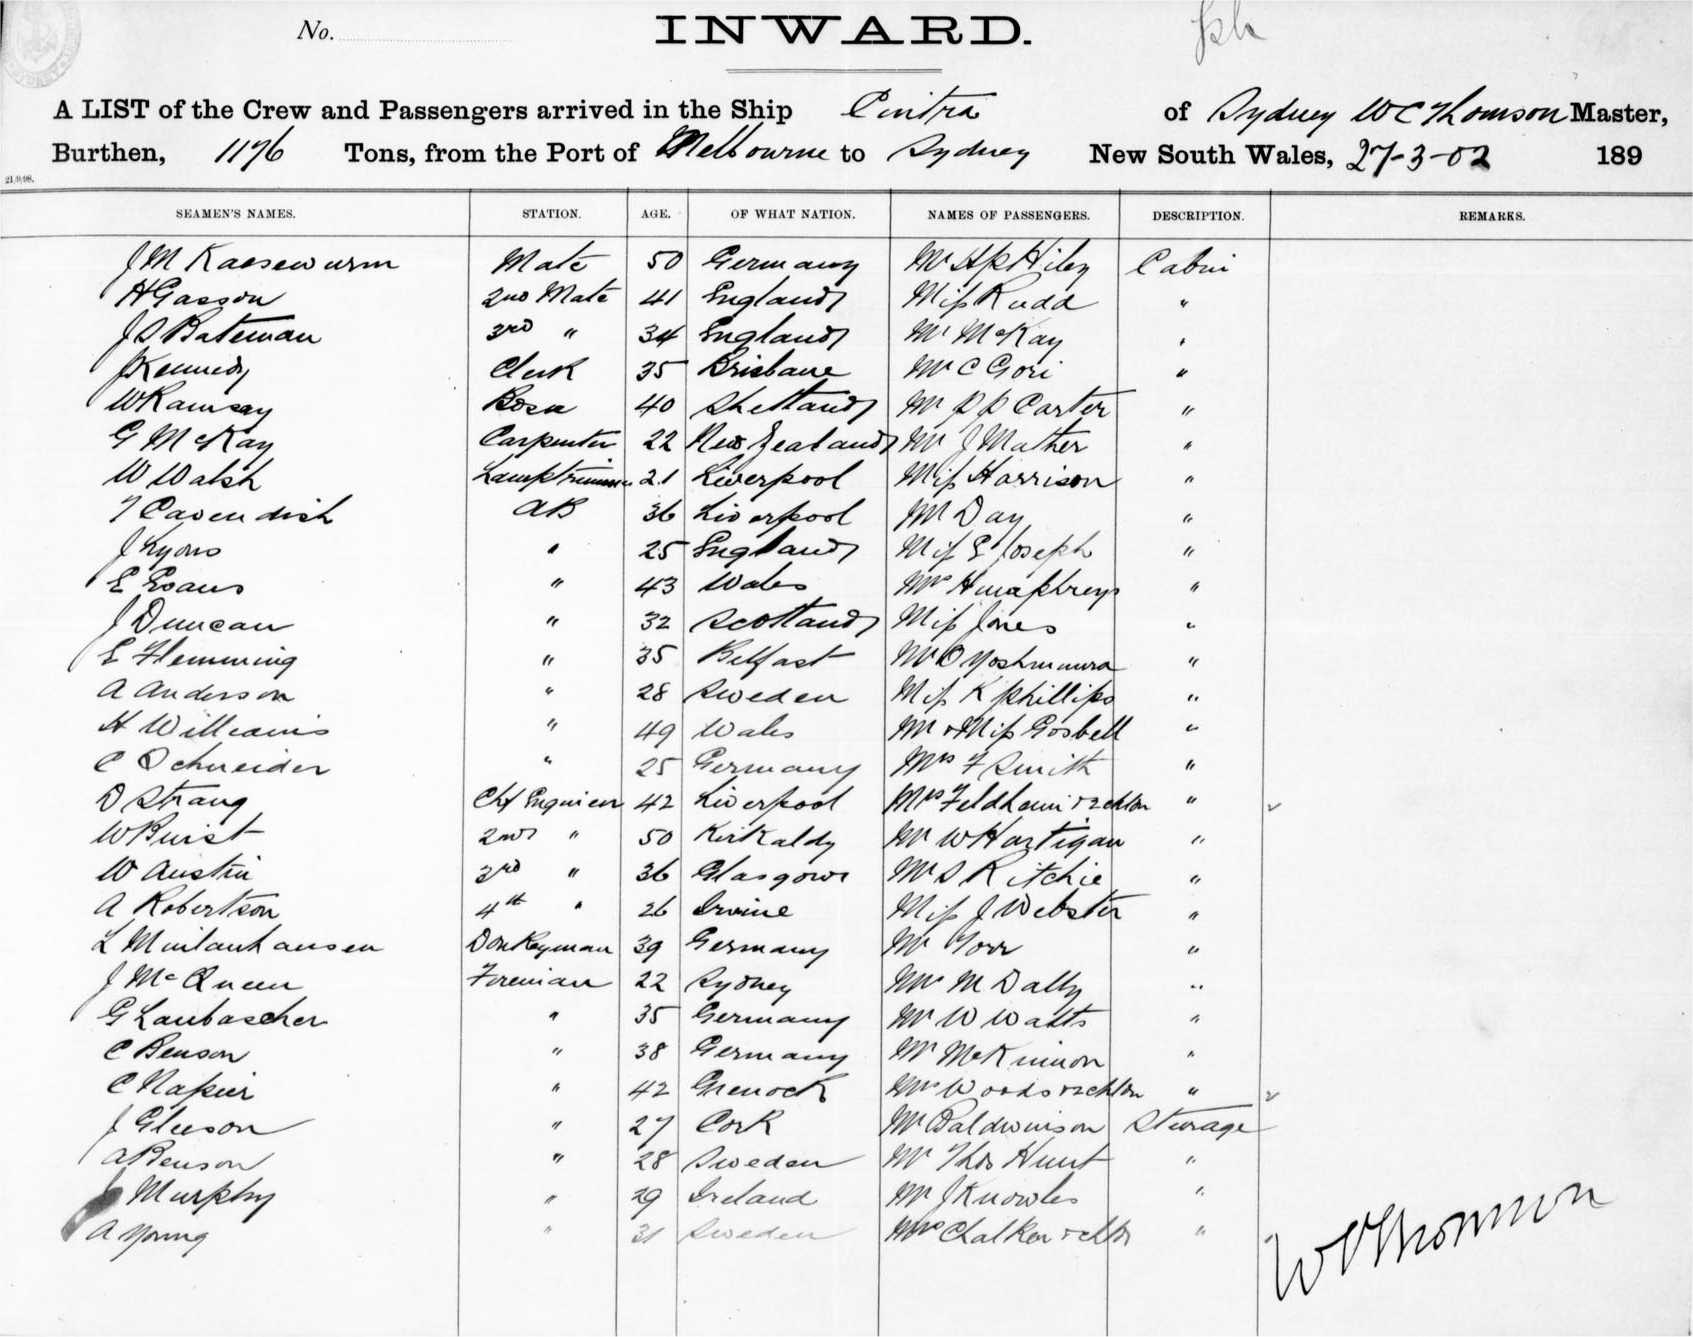 No.
INWARD.
A LIST of the Crew and Passengers arrived in the Ship Cintra of Sydney W C Thomson Master,
Burthen, 1176 Tons, from the Port of Melbourne to Sydney New South Wales, 27-3-02 189
21.9.98.
SEAMEN'S NAMES. STATION. AGE. OF WHAT NATION. NAMES OF PASSENGERS. DESCRIPTION. REMARKS.
J M Kaesewurm Mate 50 Germany Mr A P Hiley Cabin
H Gasson 2nd Mate 41 England Miss Rudd "
J S Bateman 3rd " 34 England Mr McKay "
J Kennedy Clerk 35 Brisbane Mr C Gori "
W Ramsay Bosn 40 Shetland Mr P P Carter "
G McKay Carpenter 22 New Zealand Mr J Mather "
W Walsh Lamptrimmer 21 Liverpool Miss Harrison "
T Cavendish AB 36 Liverpool Mr Day "
J Lyons " 25 England Miss E Joseph "
E Evans " 43 Wales Mrs Humphreys "
J Duncan " 32 Scotland Miss Jones "
E Flemming " 35 Belfast Mr O "
A Anderson " 28 Sweden Miss K Phillips "
H Williams " 49 Wales Mr & Miss Gosbell "
C Schneider " 25 Germany Mrs F Smith "
D Strang Chf Engineer 42 Liverpool Mrs & 2 chdn "
W Buist 2nd " 50 Kirkaldy Mr W Hartigan "
W Austin 3rd " 36 Glasgow Mr S Ritchie "
A Robertson 4th " 26 Irvine Miss J Webster "
L Donkeyman 39 Germany Mr Torr "
J McQueen Fireman 22 Sydney Mrs M Dally "
G Laubascher " 35 Germany Mr W Watts "
C Benson " 38 Germany Mr McKinnon "
C Napier " 42 Grenock Mrs Woods & 2 chdn "
J Gleeson " 27 Cork Mr Baldwinson Steerage
A Benson " 28 Sweden Mr Thos Hunt "
J Murphy " 29 Ireland Mr J Knowles "
A Young " 31 Sweden Mrs Chalker & chdn "
W C Thomson